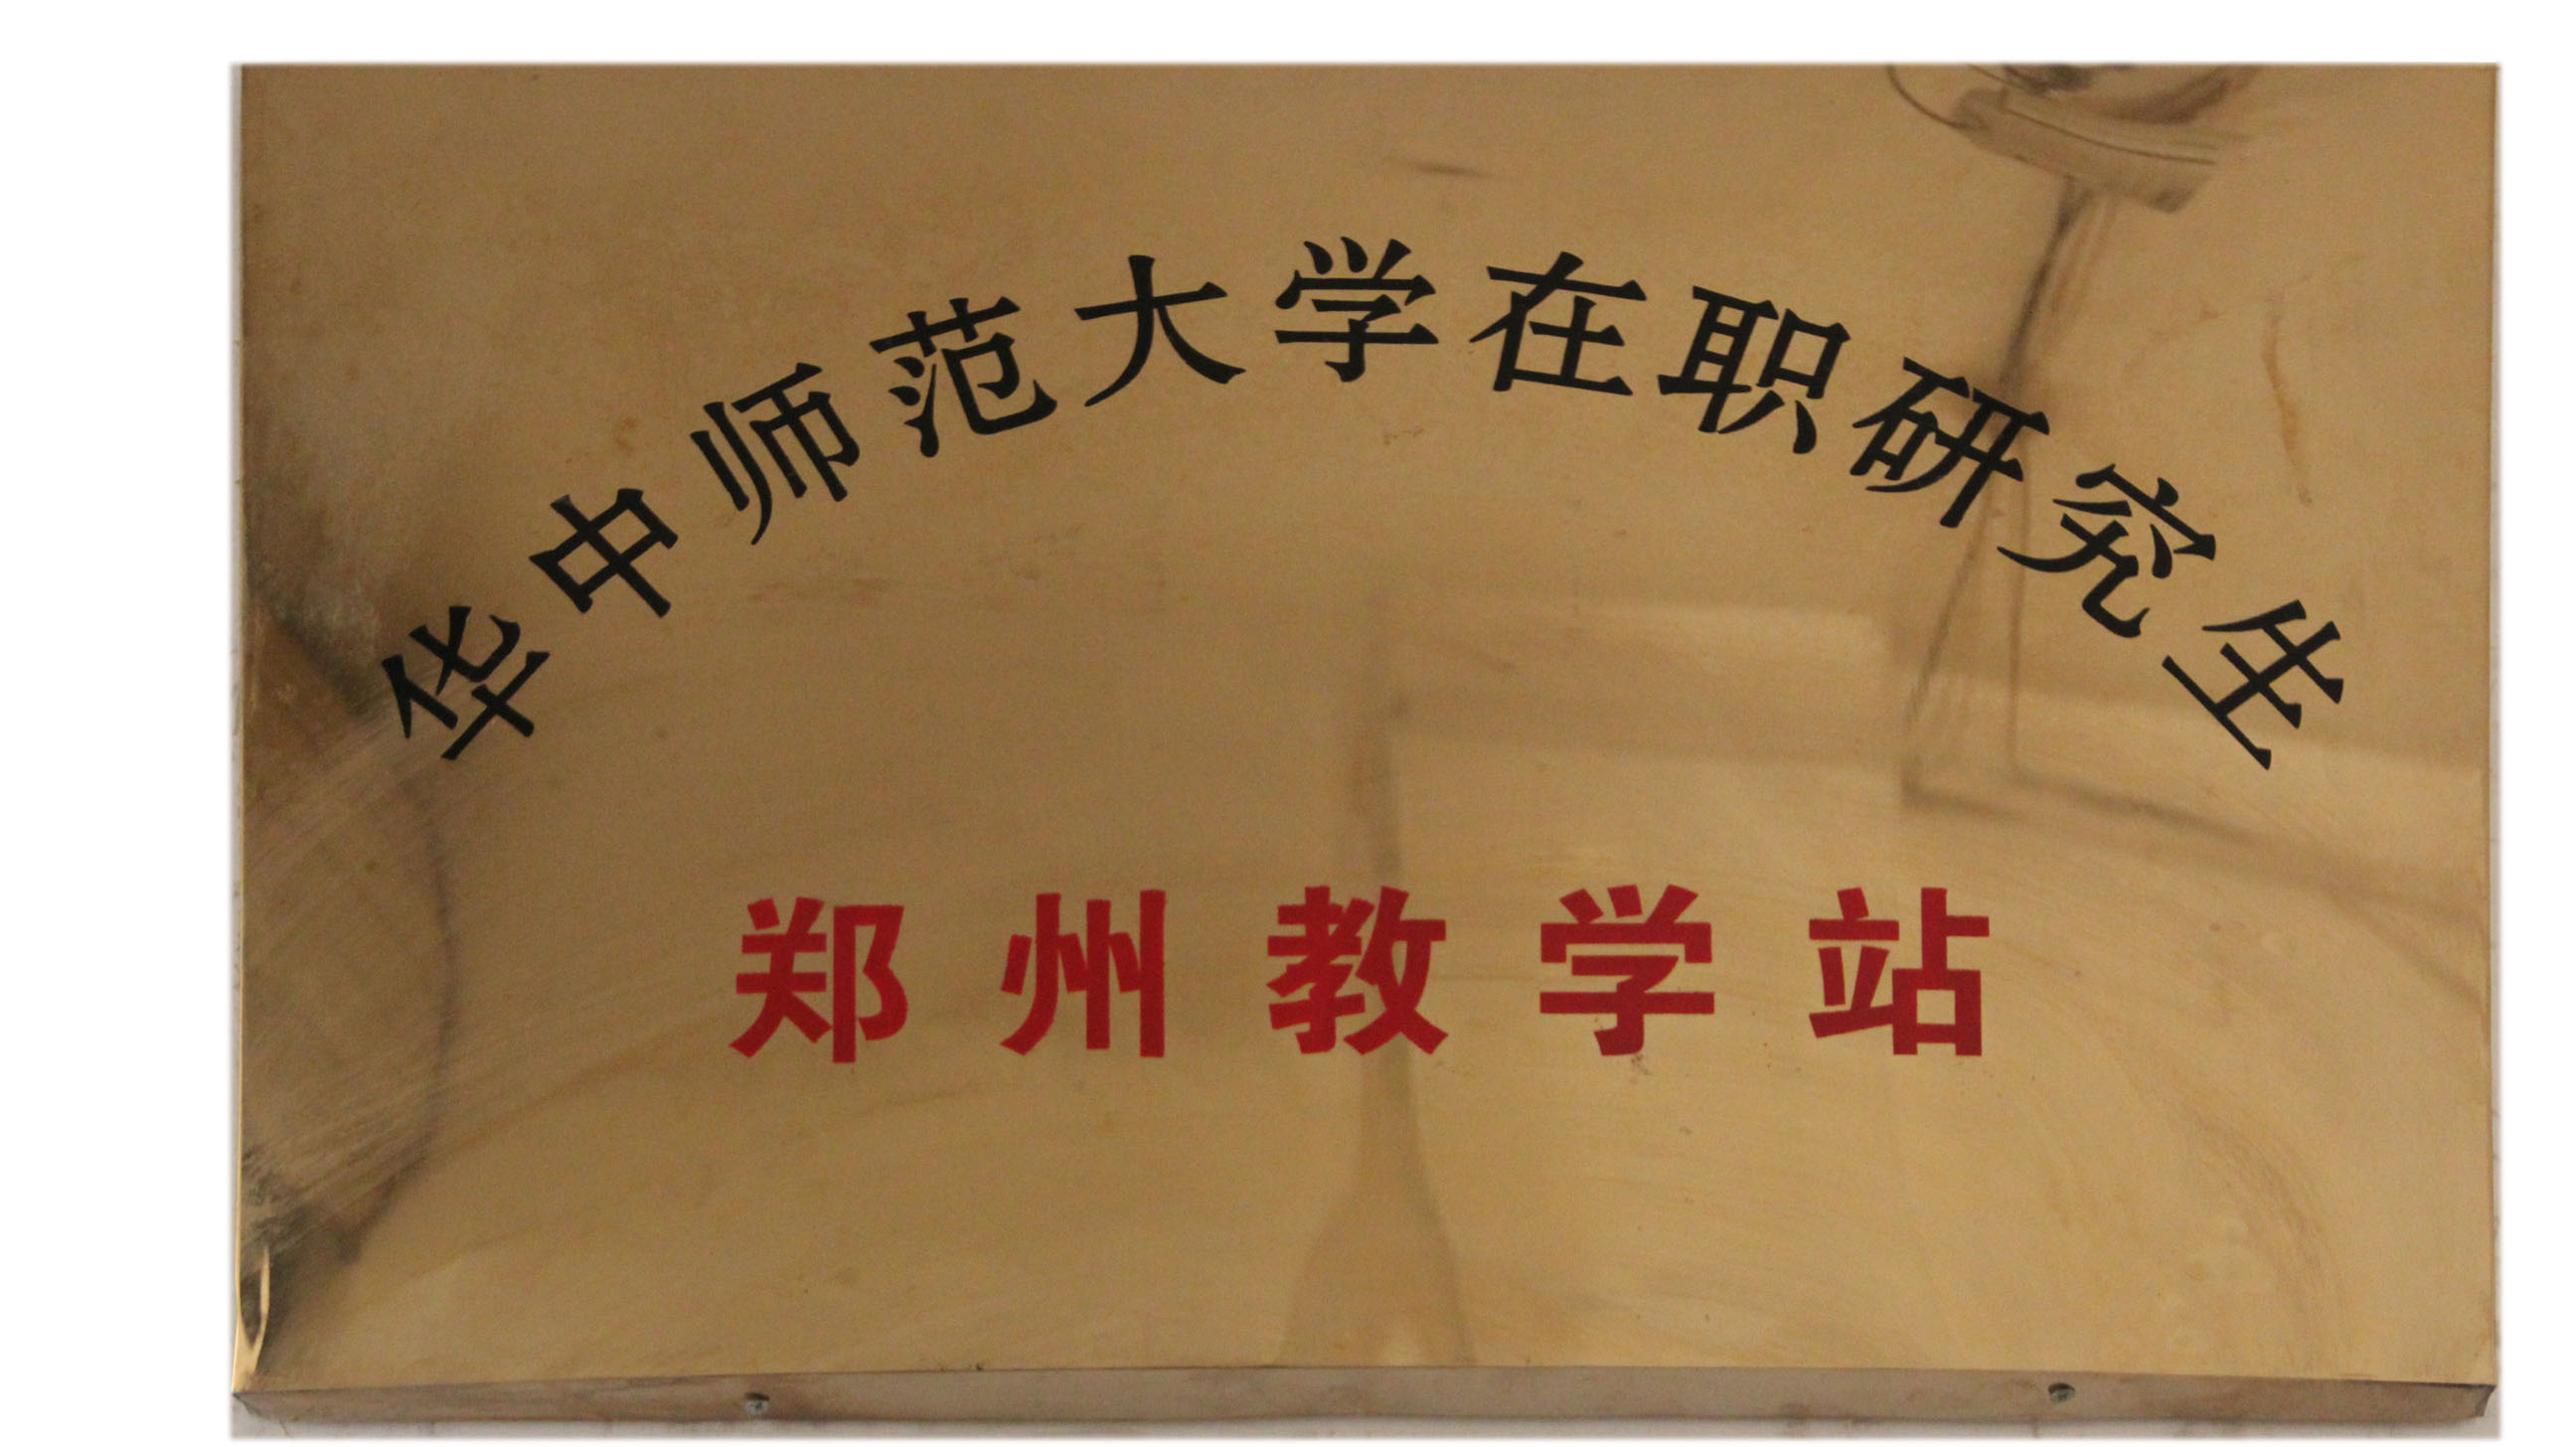 华中师范大学在职研究生
郑州教学站